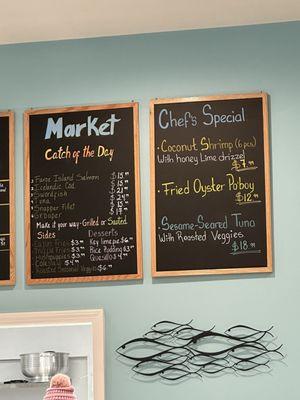 Market
Catch of the Day
Faroe Island Salmon $15.99
Icelandic Cod $15.99
Swordfish $21.99
Tuna $24.99
Snapper Filet
Grouper
Make it your way - Grilled or Sauted
Sides Desserts
Cajun Fries $3.99 Key lime pie $6.99
Truffle Fries $3.99 Rice Pudding $3.99
Hushpuppies $3.99 Quesillo $4.99
Coleslaw $4.99
Roasted Seasonal Veggies $6.99
Chef's Special
·Coconut Shrimp (6 pcs)
With honey Lime drizzel
$7.99
·Fried Oyster Po,boy
$12.99
·Sesame-Seared Tuna
With Roasted Veggies
$18.99